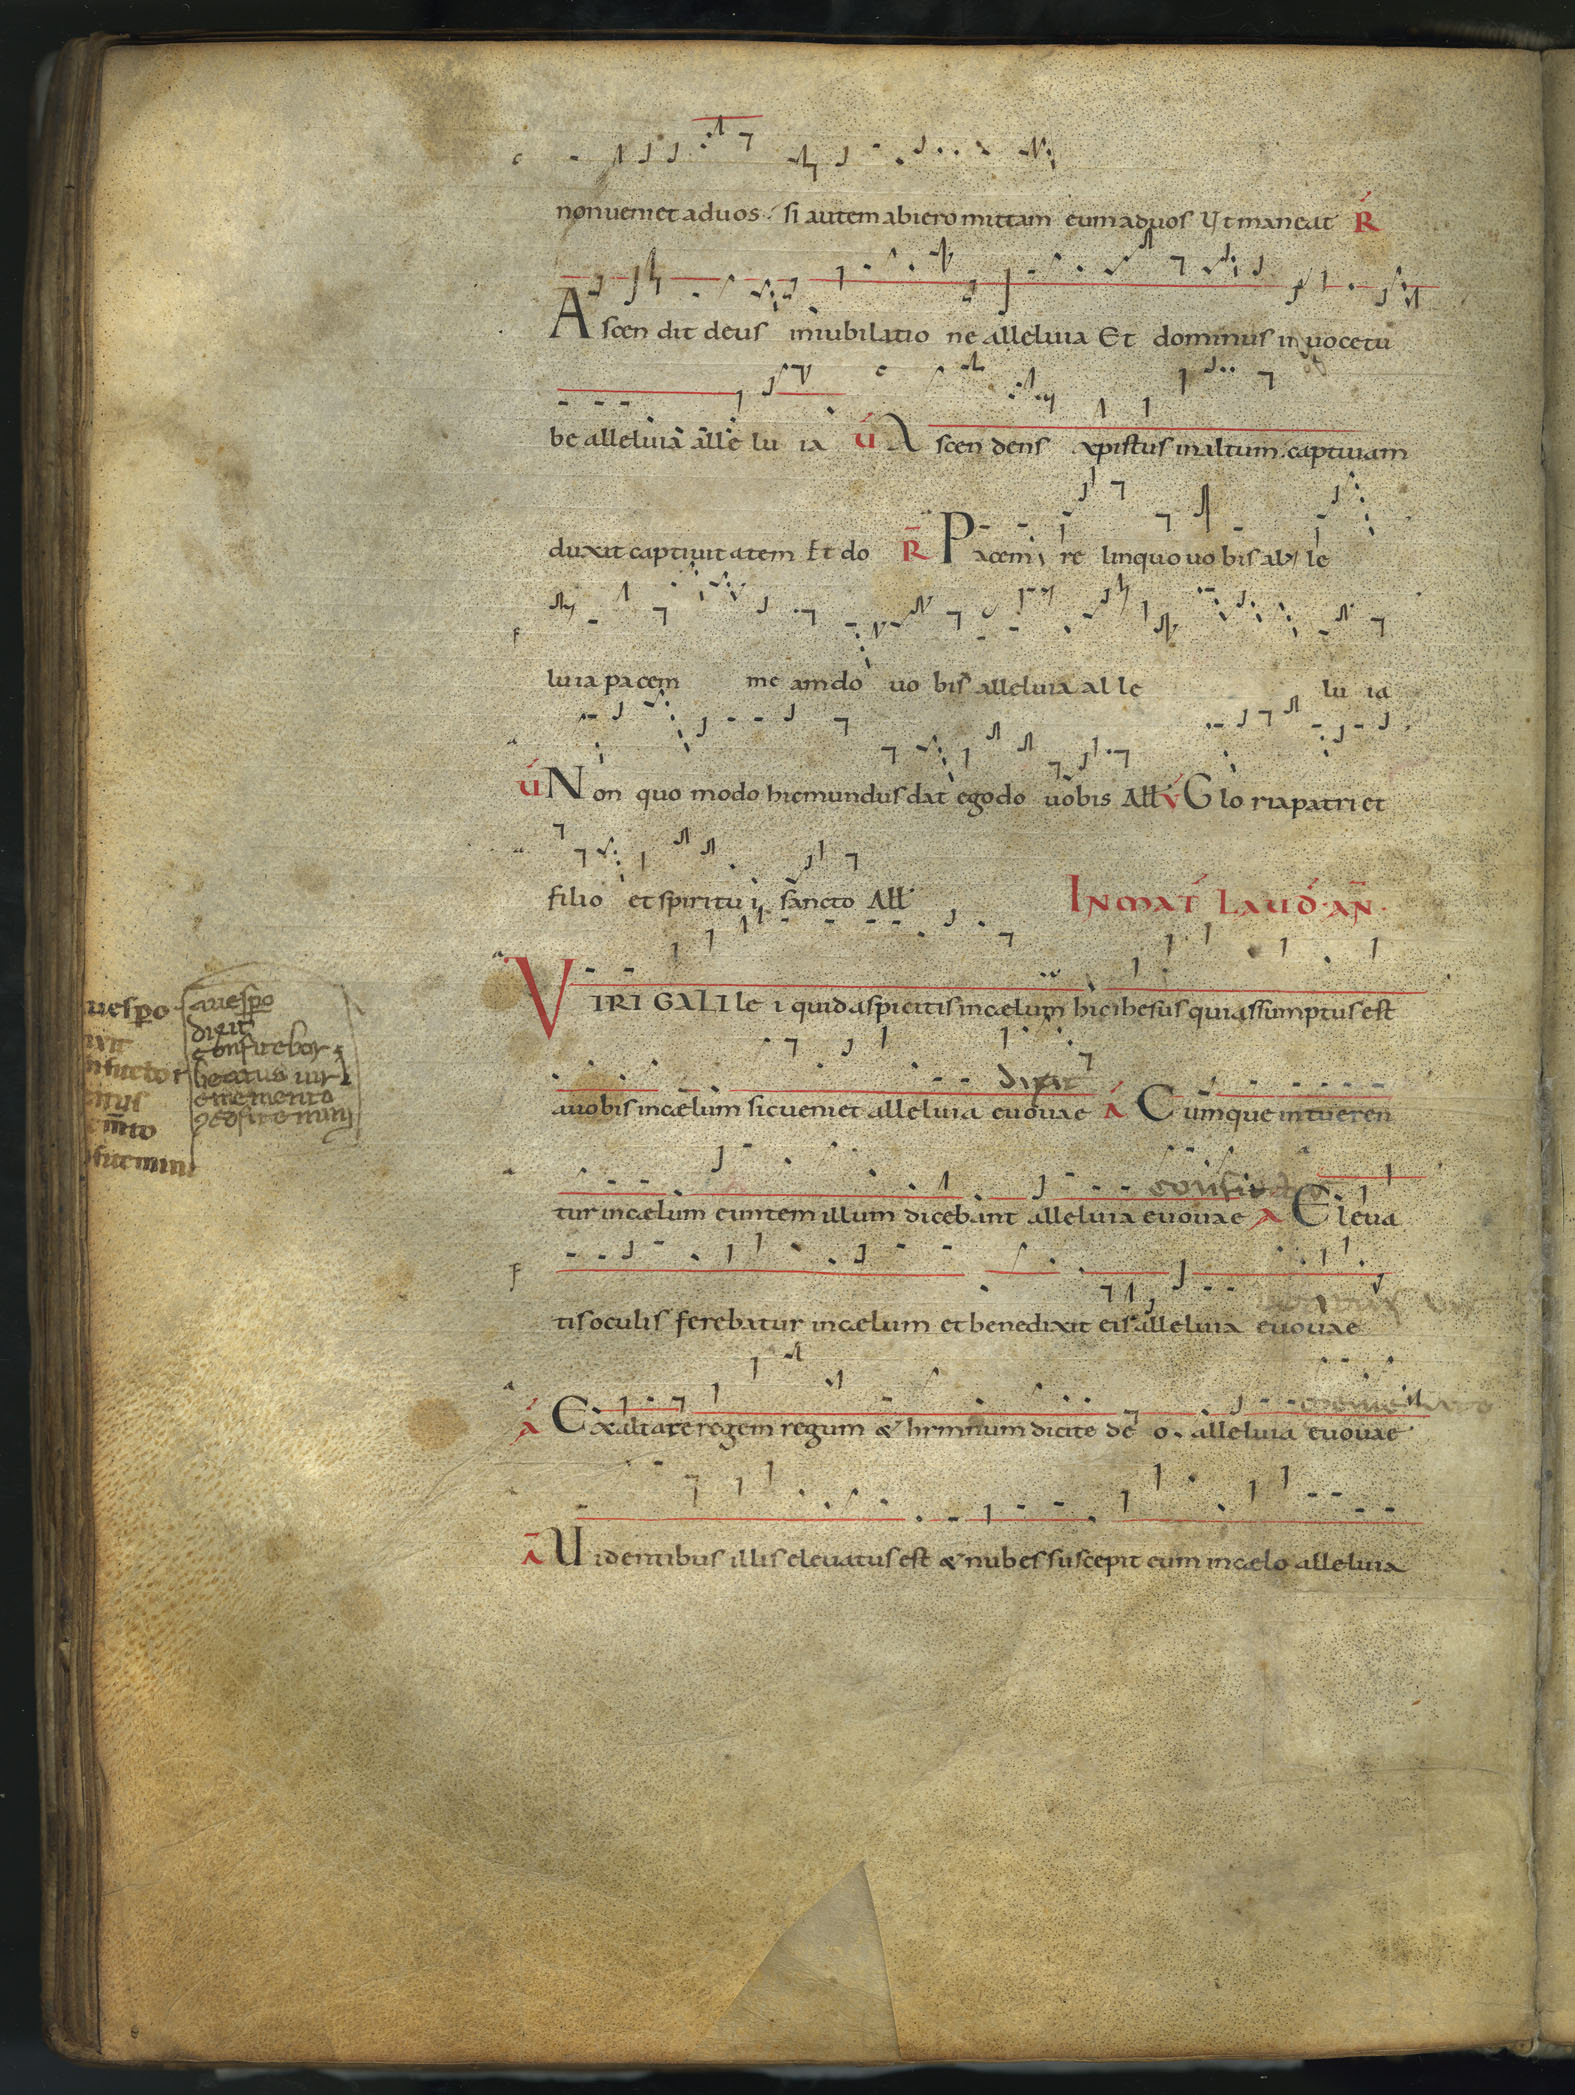 non ueniet ad uos si autem abiero mittam eum ad uos Vt maneat R
Ascendit deus in iubilatione alleluia Et dominus in uoce tu
be alleluia alle lu ia V Ascendens xpistus in altum captiuam
duxit captiuitatem Et do R Pacem relinquo uobis al le
luia pacem meam do uobis alleluia al le lu ia
V Non quomodo hic mundus dat ego do uobis All V Gloria patri et
filio et spiritui sancto All IN MAT LAUD AN
VIRI GALILei quid aspicitis in cælum hic ihesus qui assumptus est
a uobis in cælum sic ueniet alleluia euouae A Cumque intueren
dixit
tur in cælum euntem illum dicebant alleluia euouae A Eleua
tis oculis ferebatur in cælum et benedixit eis alleluia euouae
A Exaltate regem regum & hymnum dicite deo alleluia euouae
A Uidentibus illis eleuatus est & nubes suscepit eum in cælo alleluia
auespo
dixit
confitebor
beatus uir
memento